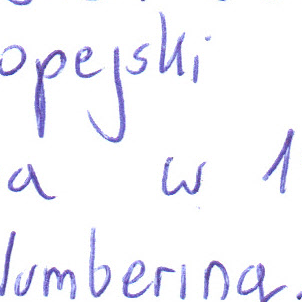 opejski
a w 1
lumbering.